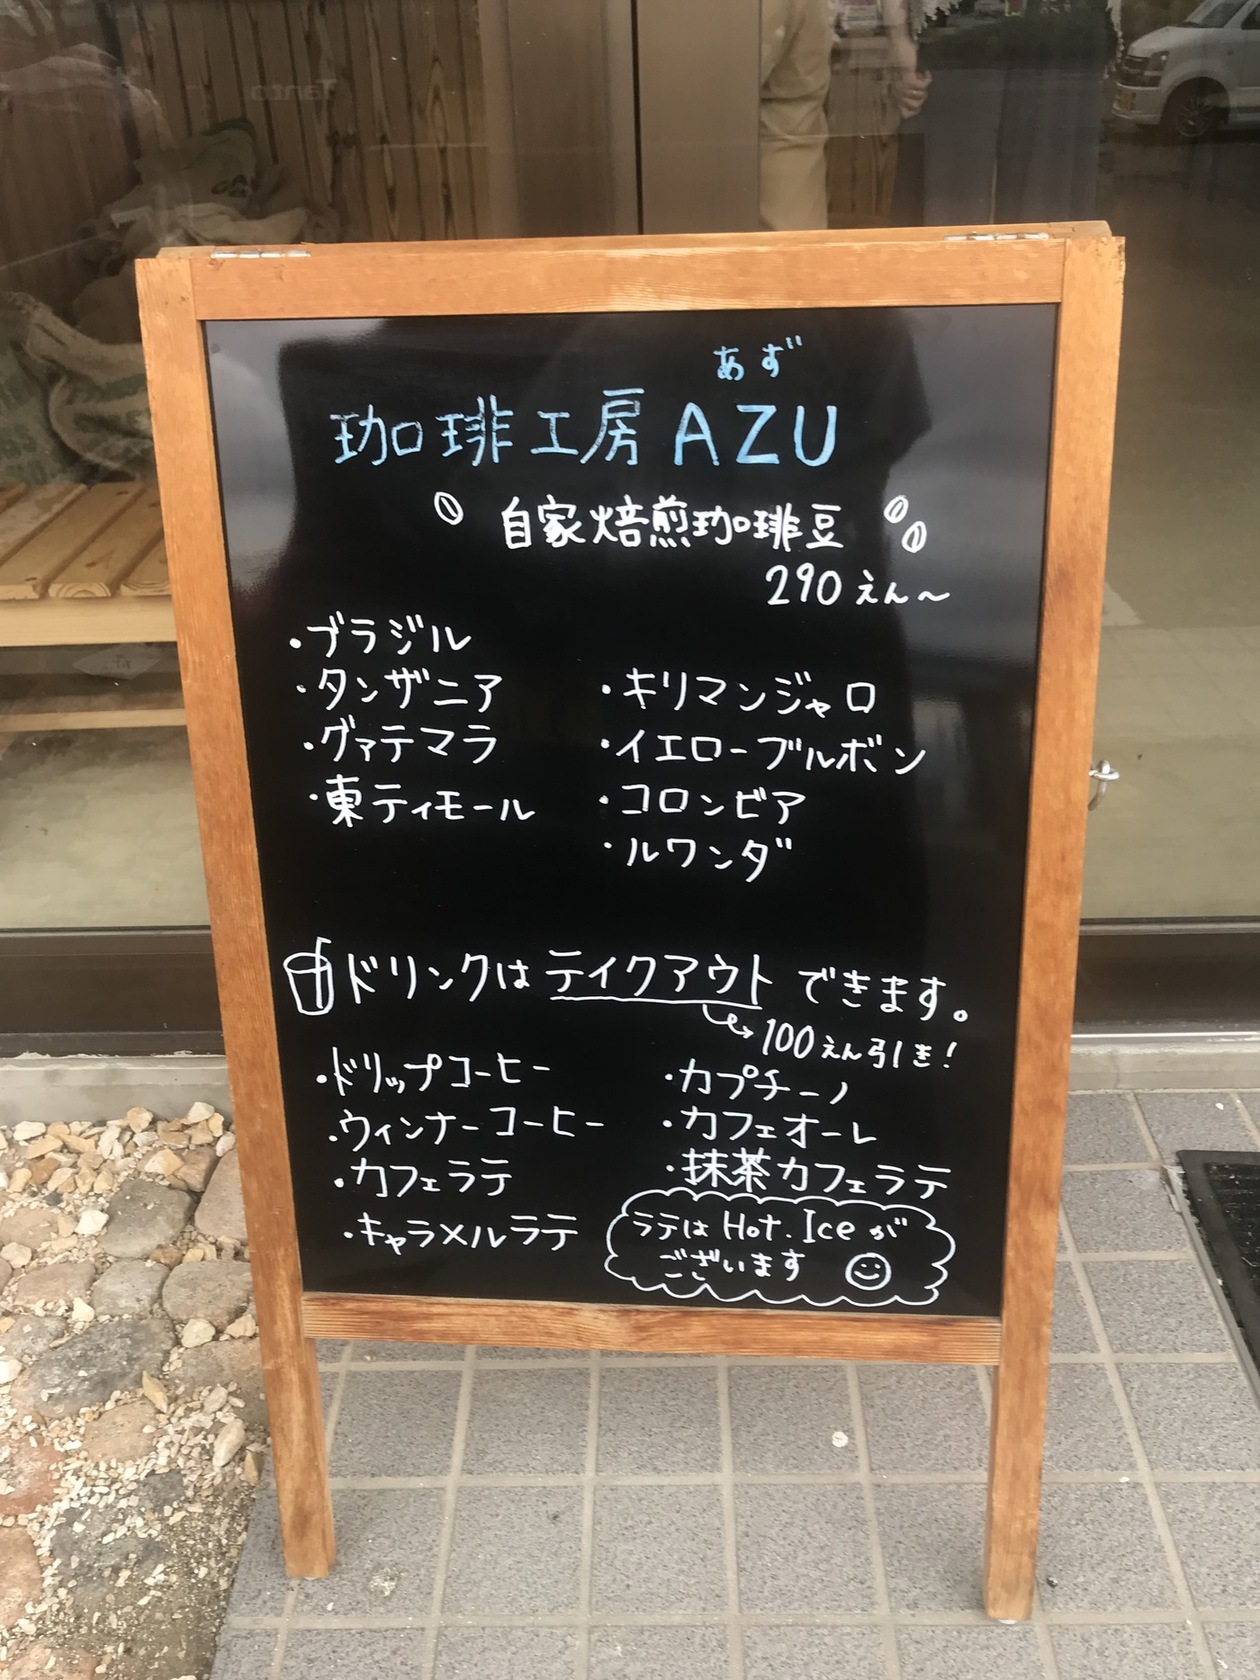 あず
珈琲工房 AZU
自家焙煎珈琲豆
290えん〜
・ブラジル
・タンザニア
・グァテマラ
・東ティモール
・キリマンジャロ
・イエローブルボン
・コロンビア
・ルワンダ
ドリンクは テイクアウト できます。
100えん引き!
・ドリップコーヒー
・ウィンナーコーヒー
・カフェラテ
・キャラメルラテ
・カプチーノ
・カフェオーレ
・抹茶カフェラテ
ラテは Hot. Ice が
ございます